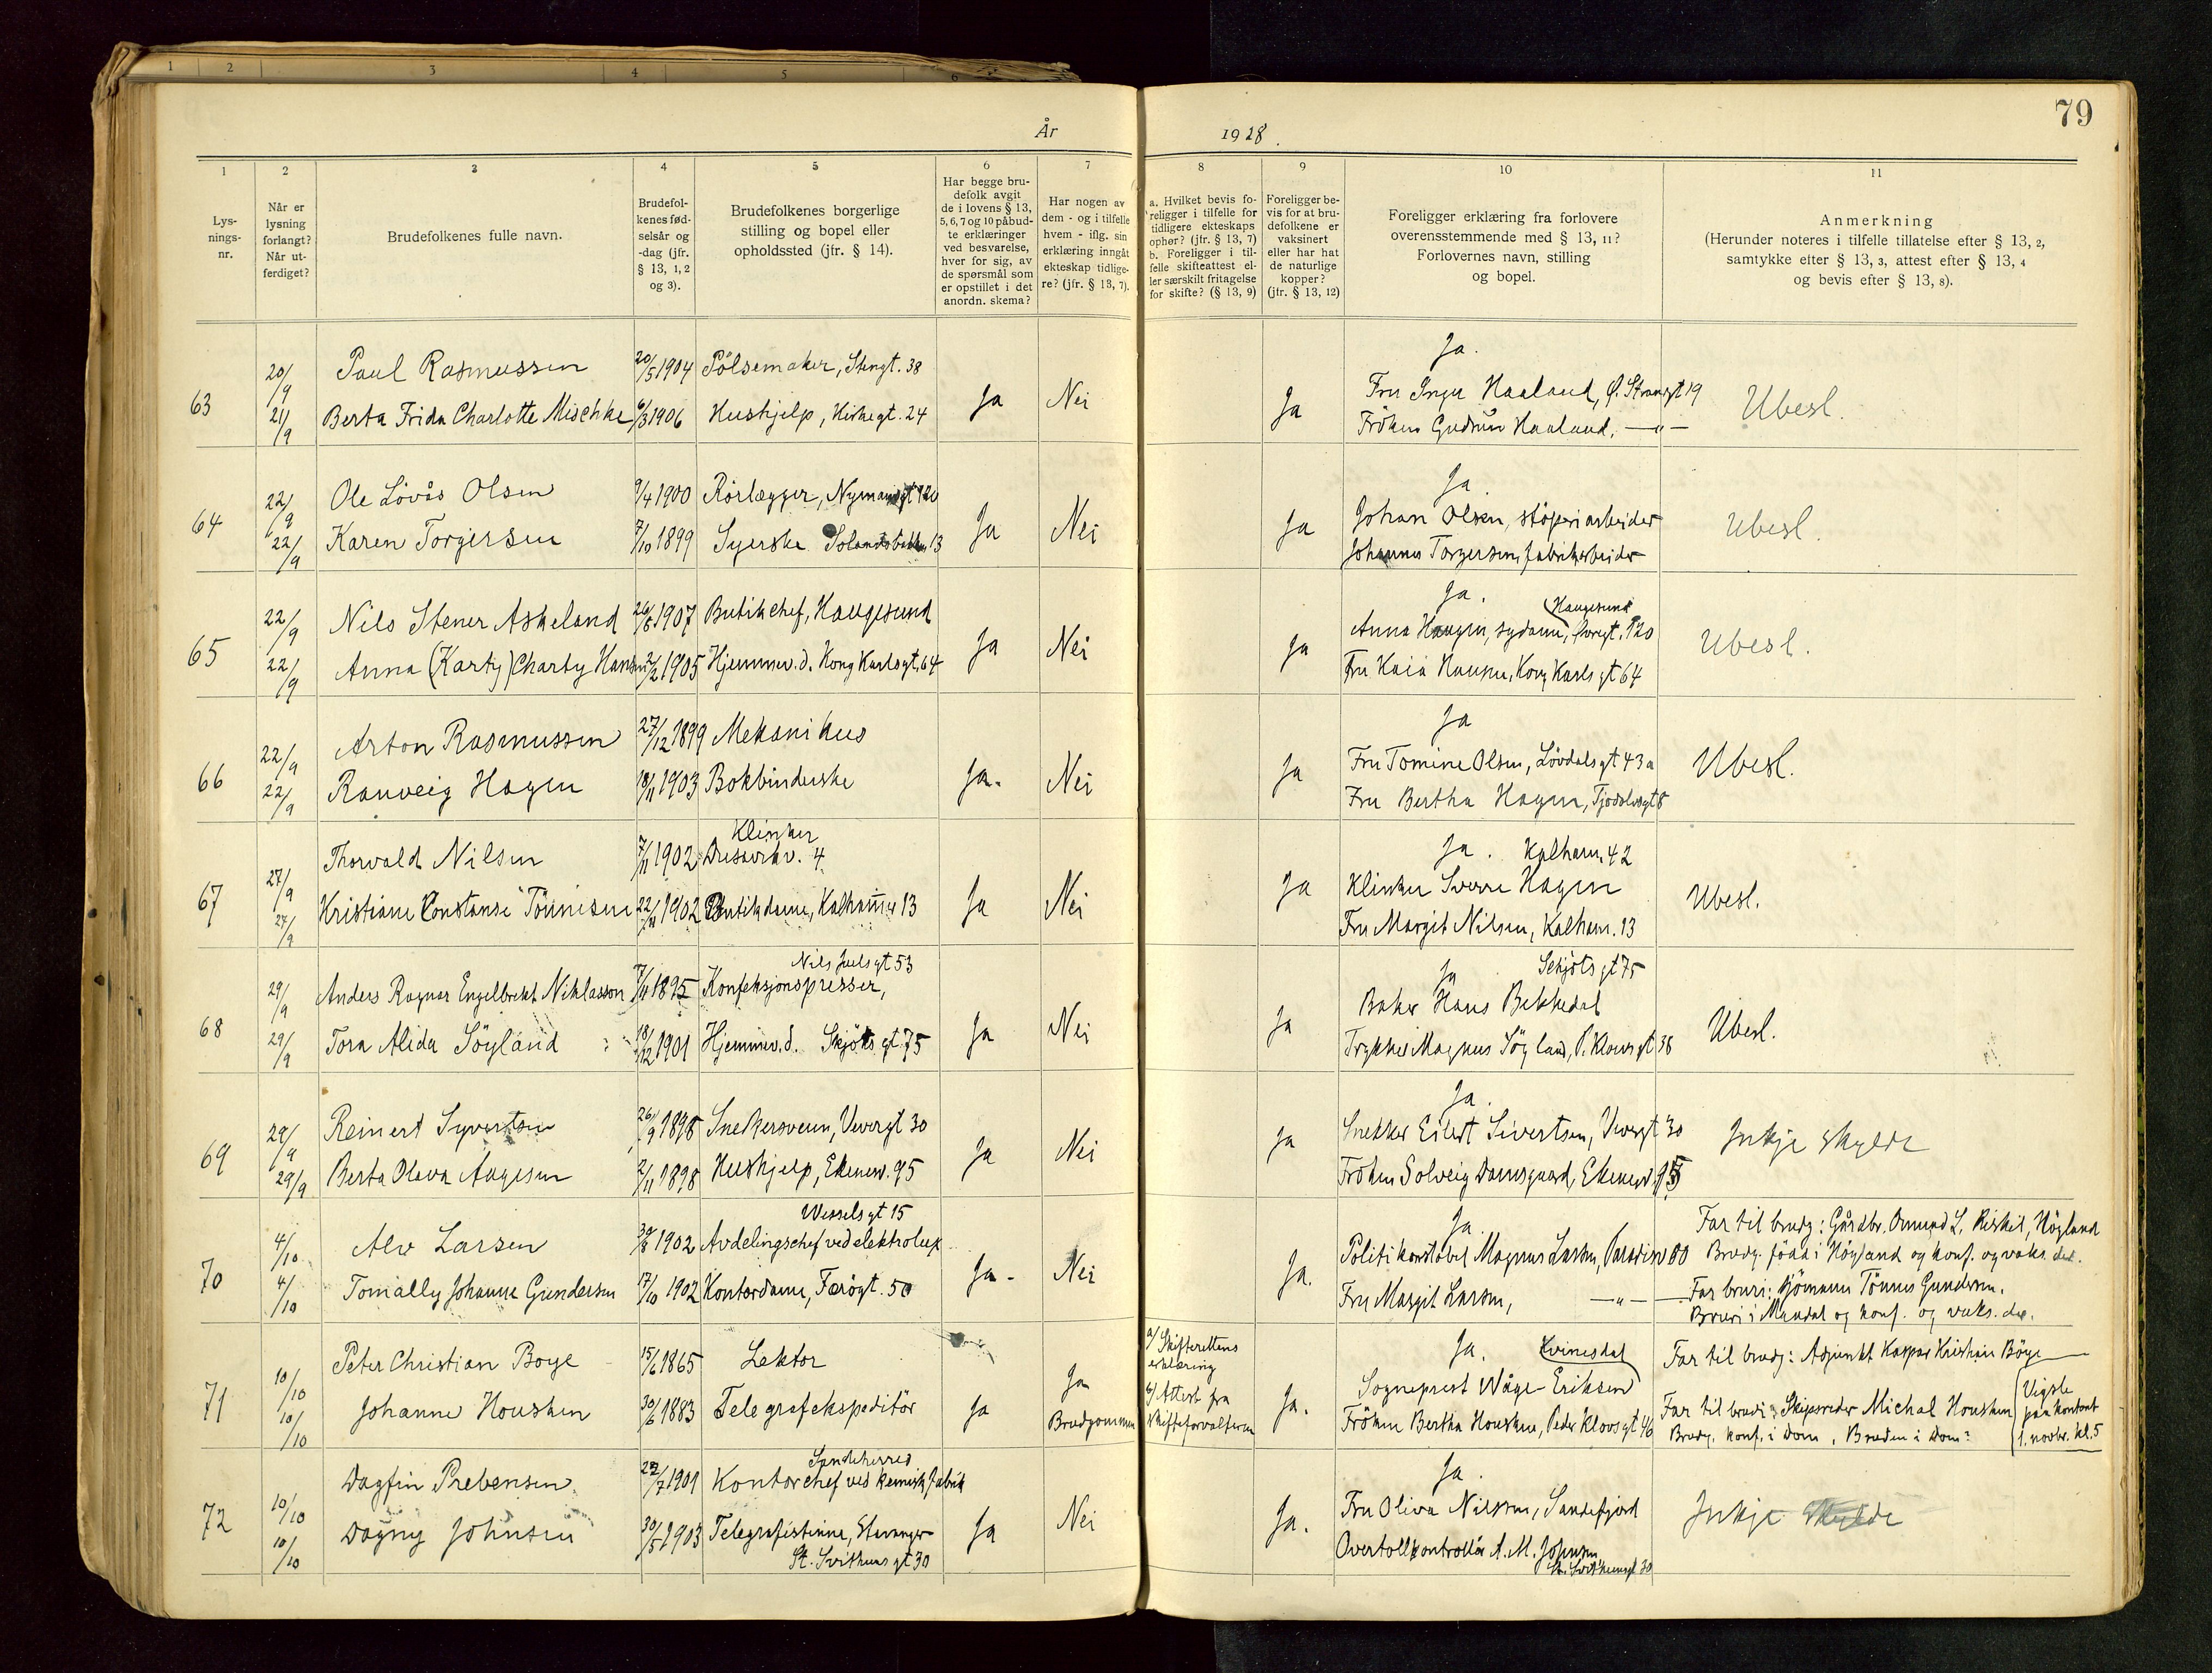 1 2 3 4 5 6
79
År 1928.
1 2 3 4 5 6 7 8 9 10 11
Lys-
nings-
nr.
Når er
lysning
forlangt?
Når ut-
ferdiget?
Brudefolkenes fulle navn.
Brudefol-
kenes fød-
selsår og
-dag (jfr.
§ 13, 1, 2
og 3).
Brudefolkenes borgerlige
stilling og bopel eller
opholdssted (jfr. § 14).
Har begge bru-
defolk avgit
de i lovens § 13,
5, 6, 7 og 10 påbud-
te erklæringer
ved besvarelse,
hver for sig, av
de spørsmål som
er opstillet i det
anordn. skema?
Har nogen av
dem - og i tilfelle
hvem - iflg. sin
erklæring inngåt
ekteskap tidlige-
re? (jfr. § 13, 7).
a. Hvilket bevis fo-
religger i tilfelle for
tidligere ekteskaps
ophør? (jfr. § 13, 7)
b. Foreligger i til-
felle skifteattest el-
ler særskilt fritagelse
for skifte? (§ 13, 9)
Foreligger be-
vis for at bru-
defolkene er
vaksinert
eller har hat
de naturlige
kopper?
(jfr. § 13, 12)
Foreligger erklæring fra forlovere
overensstemmende med § 13, 11?
Forlovernes navn, stilling
og bopel.
Anmerkning
(Herunder noteres i tilfelle tillatelse efter § 13, 2,
samtykke efter § 13, 3, attest efter § 13, 4
og bevis efter § 13, 8).
63
20/9
21/9
Paul Rasmussen
Berta Frida Charlotte Mischke
20/5 1904
6/3 1906
Pölsemaker, Stengt. 38
Hushjelp, Kirkegt. 24
Ja
Nei
Ja
Ja.
Fru Inga Haaland, Ø. Strandgt 19
Fröken Gudrun Haaland, —"—
Ubesl.
64
22/9
22/9
Ole Lövås Olsen
Karen Torgersen
9/4 1900
7/10 1899
Rörlægger, Nymansgt 120
Syerske Solandsbakken 13
Ja
Nei
Ja
Ja.
Johan Olsen, stöperiarbeider
Johannes Torgersen, fabrikarbeider
Ubesl.
65
22/9
22/9
Nils Stener Askeland
Anna (Karty) Charty Hansen
26/8 1907
2/2 1905
Butikchef, Haugesund
Hjemmev. d. Kong Karlsgt. 64
Ja
Nei
Ja
Ja.
Haugesund
Anna Haugen, sydame, Övregt. 120
Fru Kaia Hansen, Kong Karls gt 64
Ubesl.
66
22/9
22/9
Arton Rasmussen
Ranveig Hagen
27/12 1899
18/11 1903
Mekanikus
Bokbinderske
Ja.
Nei
Ja
Ja
Fru Tomine Olsen, Lövdalsgt 43a
Fru Bertha Hagen, Tjodolvsgt 8
Ubesl.
67
27/9
27/9
Thorvald Nilsen
Kristiane Constanse Tönnesen
7/11 1902
22/11 1902
Klinker
Dusavikv. 4
Butikdame, Kalhammer 13
Ja
Nei
Ja
Ja. Kalham. 42
Klinker Sverre Hagen
Fru Margit Nilsen, Kalham. 13
Ubesl.
68
29/9
29/9
Anders Ragnar Engelbrekt Niklasson
Tora Alida Söyland
7/11 1895
18/12 1901
Nils Juelsgt 53
Konfeksjonspresser,
Hjemmev. d. Skjöts gt. 75
Ja
Nei
Ja
Ja Skjöts gt 75
Baker Hans Bekkedal
Trykker Magnus Söyland, P. Klowsgt 38
Ubesl.
69
29/9
29/9
Reinert Syvertsen
Berta Olava Aagesen
26/9 1898
2/11 1898
Snekkersvenn, Vevergt 30
Hushjelp, Ekenesv. 95
Ja
Nei
Ja
Ja.
Snekker Eilert Sivertsen, Vevergt 30
Fröken Solveig Damsgaard, Ekenesv. 95
Inkje skylde
70
4/10
4/10
Alv Larsen
Tomally Johanne Gundersen
30/8 1902
17/10 1902
Wesselsgt 15
Avdelingschef ved elektrolux
Kontordame, Færögt. 50
Ja-
Nei
Ja.
Ja.
Politikonstabel Magnus Larsen, Paradisv 80
Fru Margit Larsen, —"—
Far til brudg: Gårdbr. Omund L. Riskil, Högland
Brudg. född i Högland og konf. og vaks. der.
Far bruri: Sjömann Tönnes Gundersen.
Bruri i Mandal og konf. og vaks. der.
71
10/10
10/10
Peter Christian Boye
Johanne Housken
15/6 1865
30/6 1883
Lektor
Telegrafekspeditör
Ja
Ja
Brudgommen
a/ Skifterettens
erklæring
b/ Attest fra
skifteforvalteren
Ja.
Ja. Kvinesdal
Sogneprest Wåge-Eriksen
Fröken Bertha Housken, Peder Klovsgt 46
Far til brudg: Adjunkt Kaspar Kristian Böye
Far til brudi: Skipsreder Michal Housken
Brudg. konf. i Dom, Bruden i Dom:
Vigsle
paa kontoret
1. novbr. kl. 5
72
10/10
10/10
Dagfin Prebensen
Dagny Johnsen
22/7 1901
30/5 1903
Sandeherred
Kontorchef ved kemisk fabrik
Telegrafistinne, Stavanger
St. Svithuns gt 30
Ja
Nei
Ja.
Ja.
Fru Oliva Nilsen, Sandefjord
Overtollkontrollör A. M. Johnsen
St. Svithunsgt 30
Inkje skylde